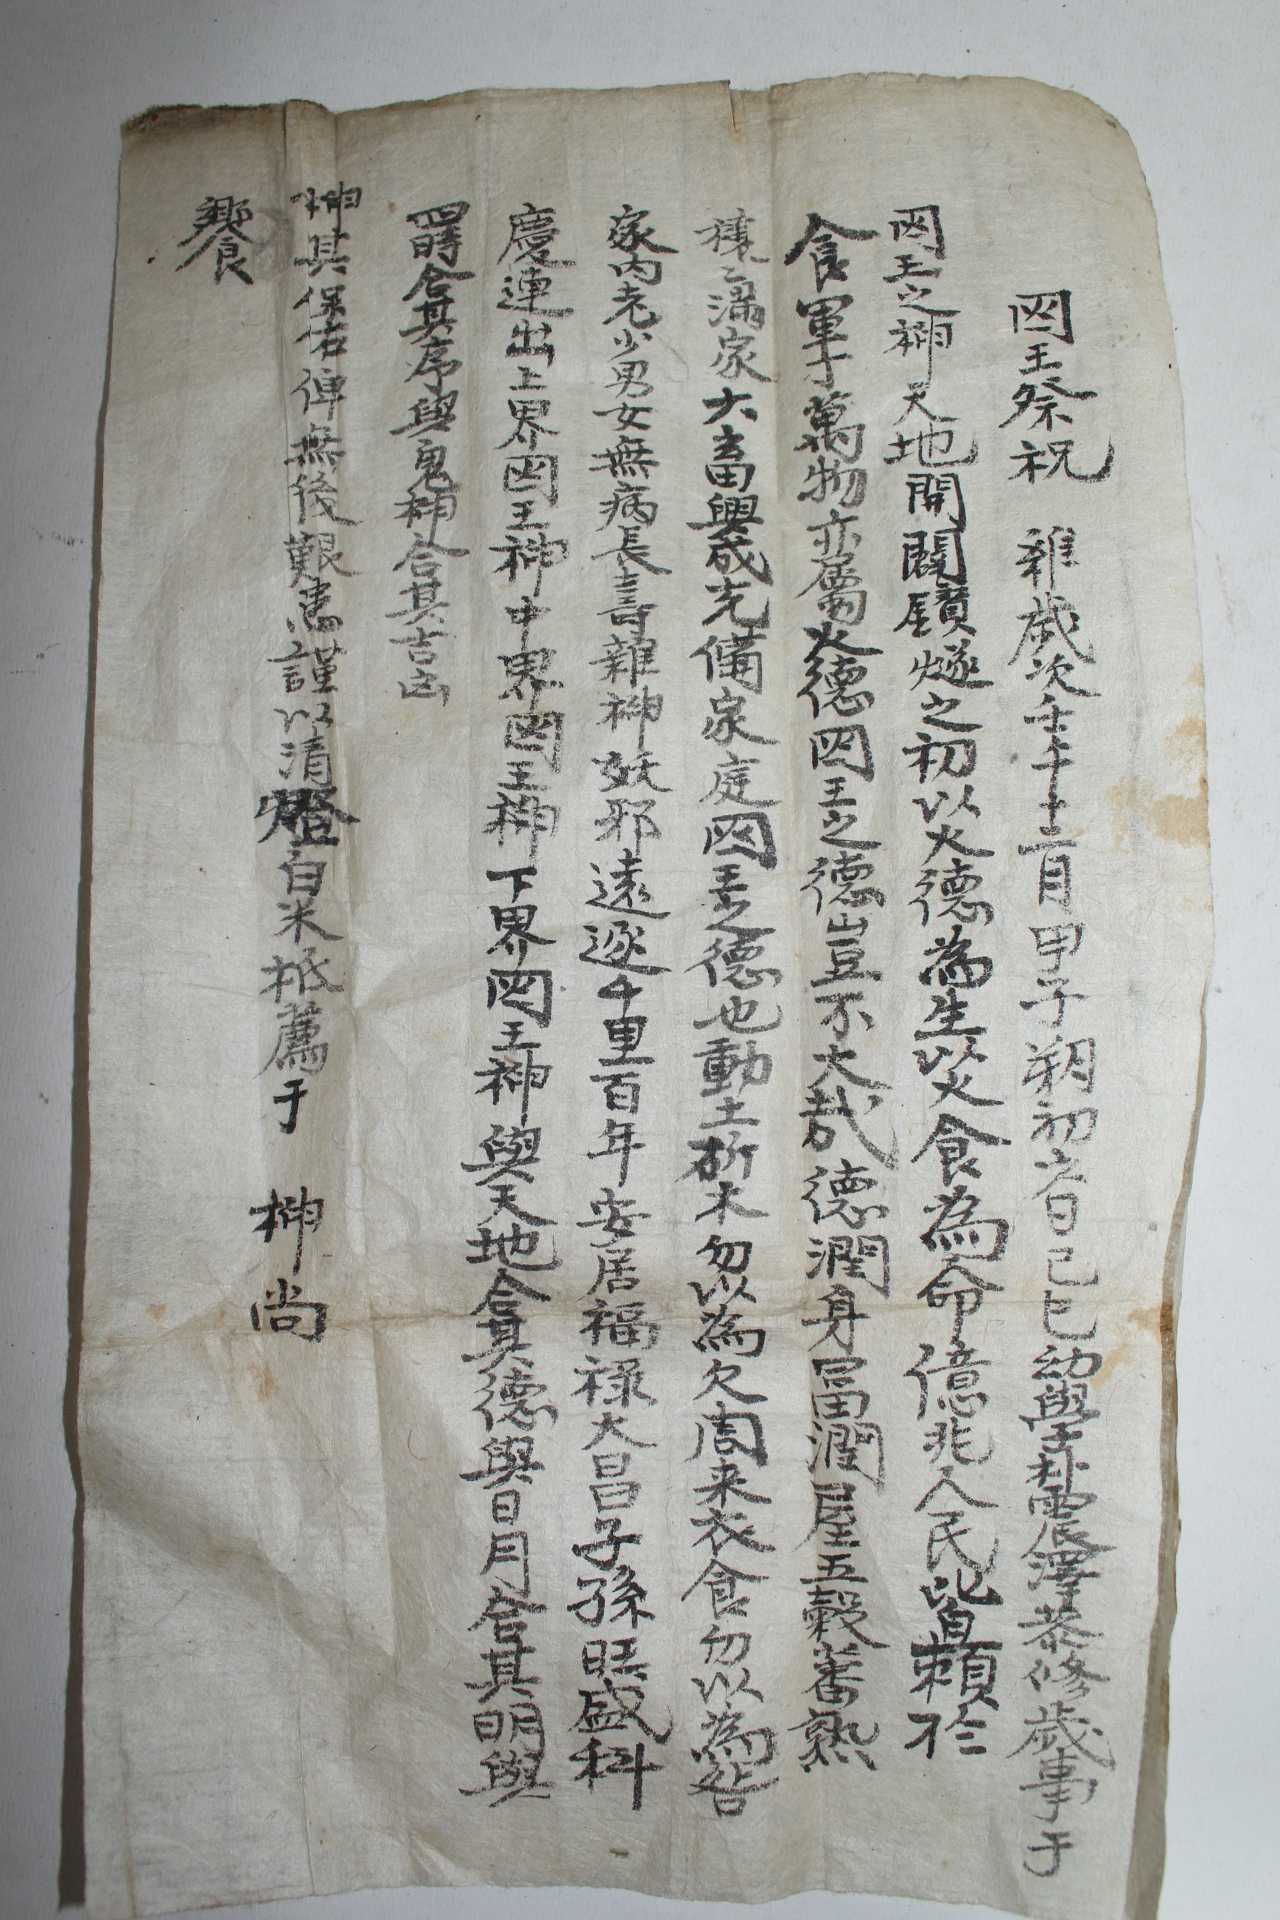 囚王祭祝 維歲次壬午十二月甲子朔初六日己巳幼學朴震澤恭修歲事于
囚王之神天地開闢鑽燧之初以火德為生以火食為命億兆人民皆賴於
食軍才萬物亦屬火德囚王之德豈不大哉德潤身冨潤屋五穀蕃熟
穰〻滿家六畜興成充備家庭囚王之德也動土斫木勿以為欠周来衣食勿以為咎
家内老少男女無病長壽雜神妖邪遠逐千里百年安居福祿大昌子孫旺盛科
慶連出上界囚王神中界囚王神下界囚王神與天地合其德與日月合其明與
四時合其序與鬼神合其吉凶
神其保佑俾無後艱謹以清燈白米祗薦于 神尚
饗